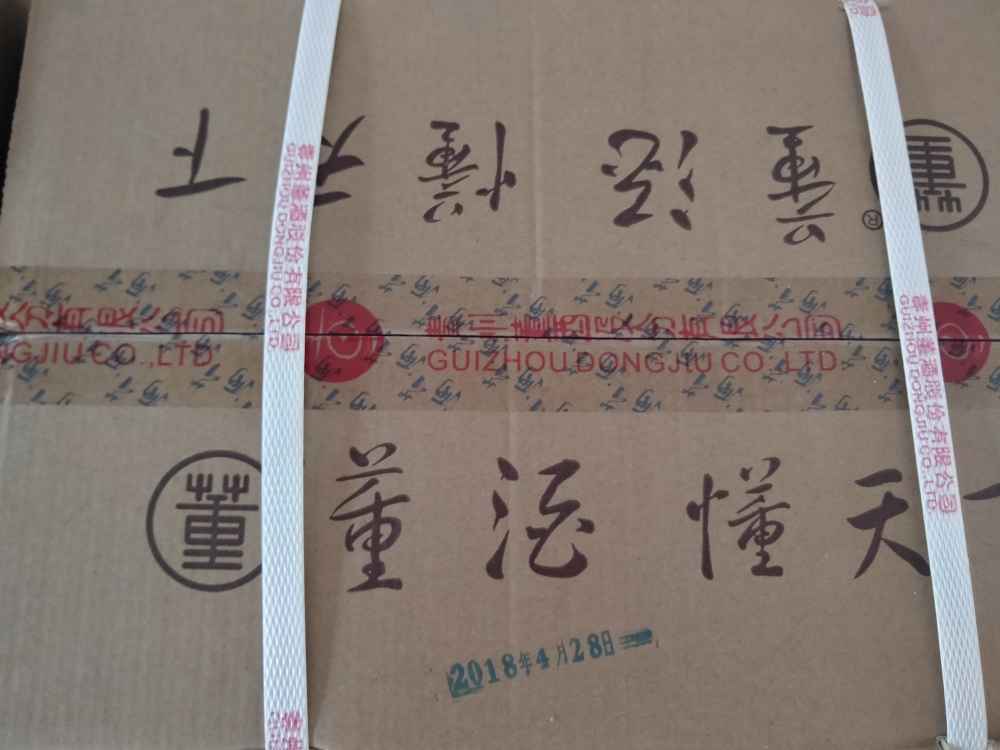 董 董酒懂天下
®
贵州董酒股份有限公司
GUIZHOU DONGJIU CO.,LTD
份有限公司
NGJIU CO.,LTD
贵州董酒股份有限公司
GUIZHOU DONGJIU CO.,LTD
贵州董酒股份有限公司
GUIZHOU DONGJIU CO.,LTD
董 董酒懂天
2018年4月28日